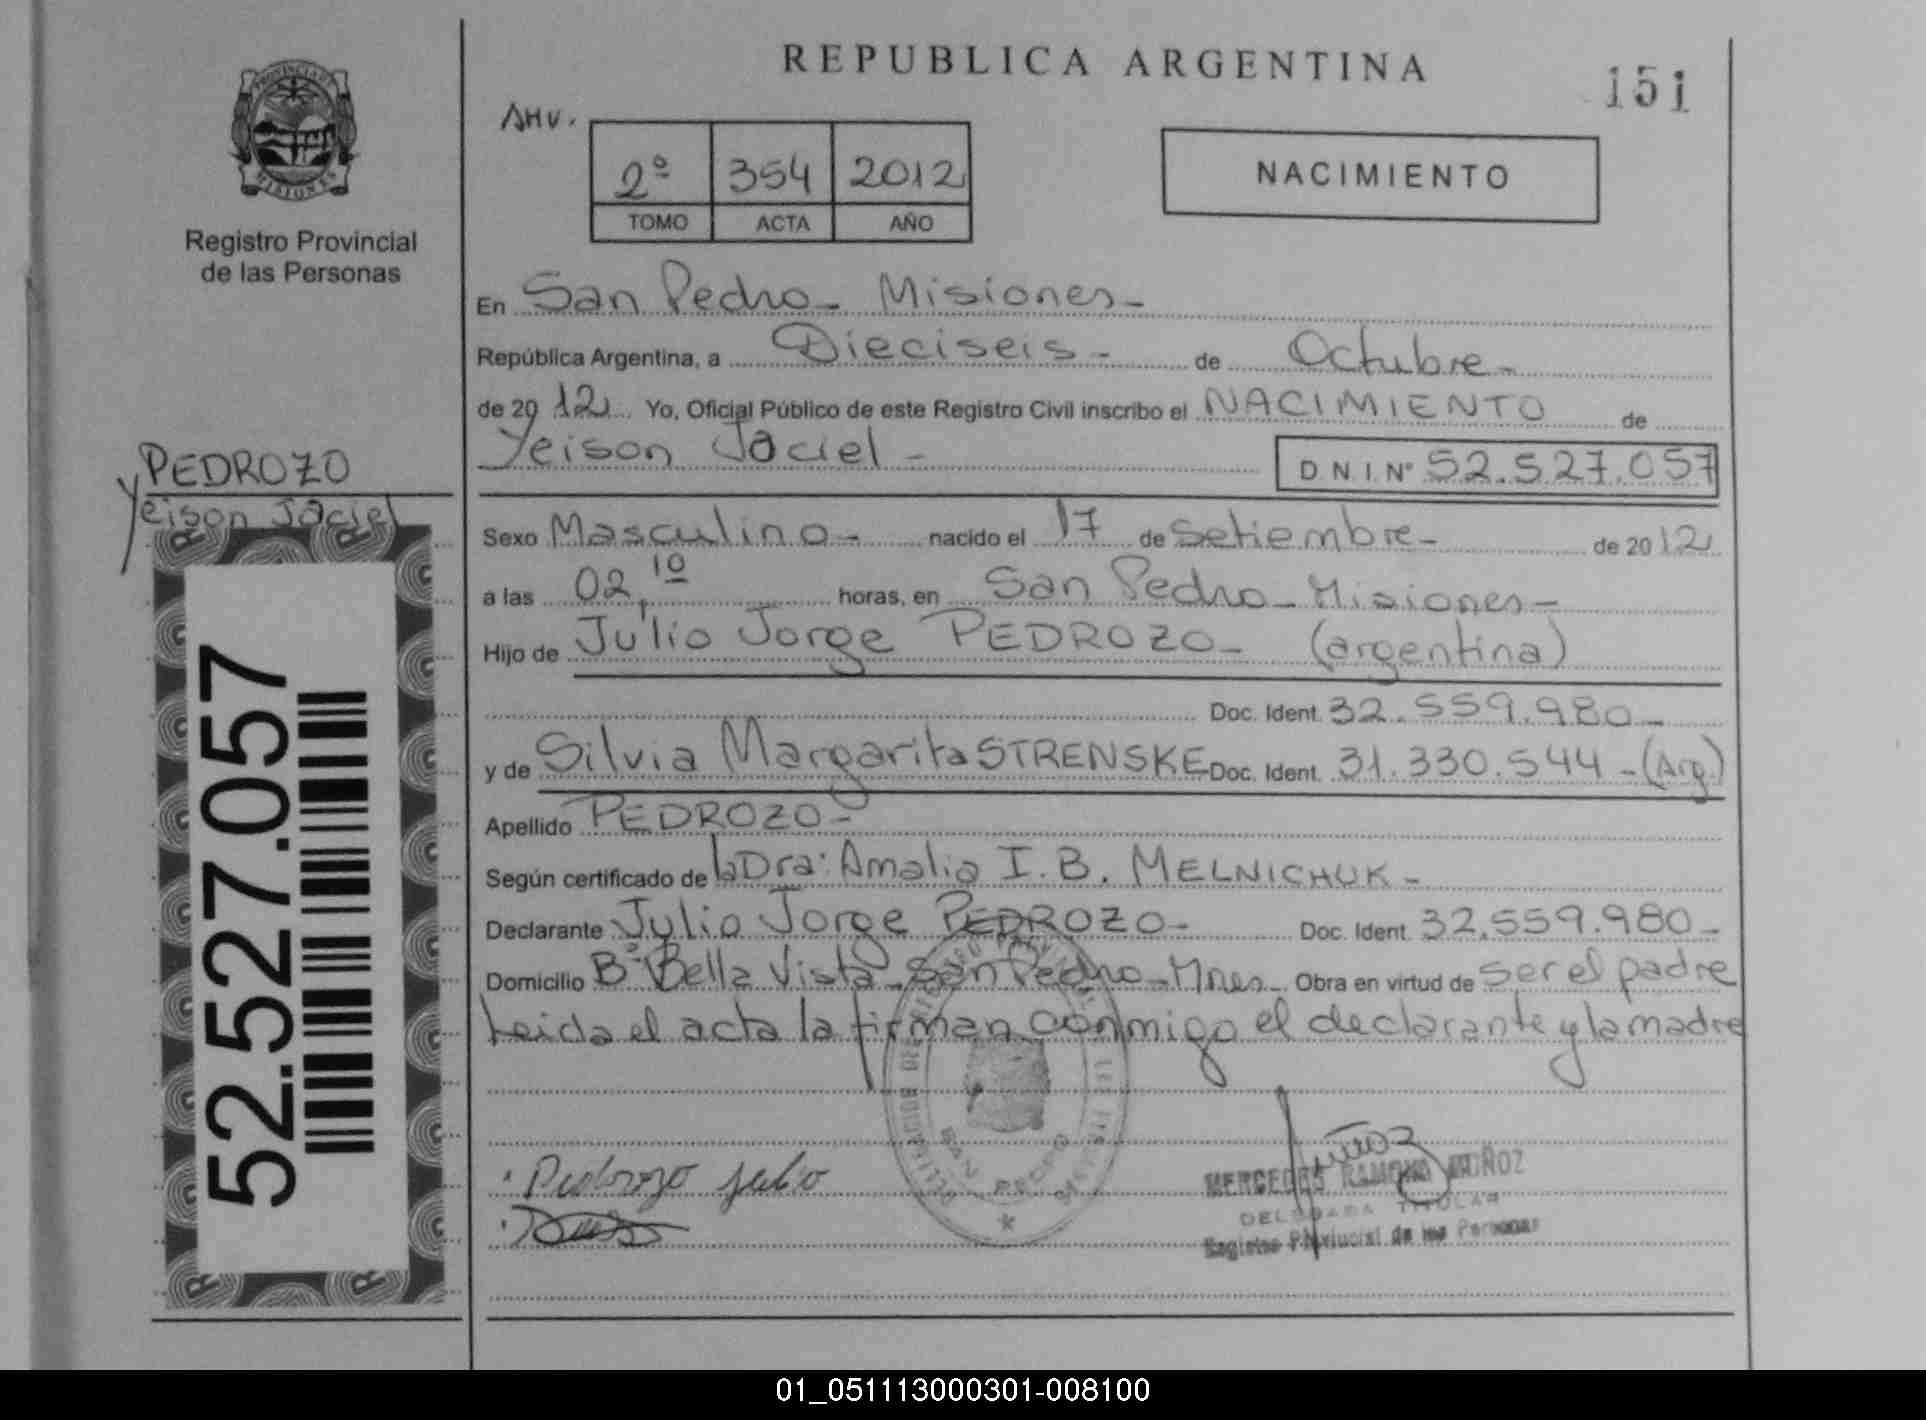 REPUBLICA ARGENTINA
151
AHV.
2º 354 2012
TOMO ACTA AÑO
NACIMIENTO
PROVINCIA DE
MISIONES
Registro Provincial
de las Personas
En San Pedro - Misiones -
República Argentina, a Dieciseis - de Octubre -
de 2012 Yo, Oficial Público de este Registro Civil inscribo el NACIMIENTO de
Yeison Jaciel -
D.N.I.Nº 52.527.057
PEDROZO
Yeison Jaciel
52.527.057
Sexo Masculino - nacido el 17 de Setiembre - de 2012
a las 02,10 horas, en San Pedro - Misiones -
Hijo de Julio Jorge PEDROZO - (argentina)
Doc. Ident. 32.559.980 -
y de Silvia Margarita STRENSKE Doc. Ident. 31.330.544 - (Arg.)
Apellido PEDROZO -
Según certificado de la Dra: Amalia I. B. MELNICHUK -
Declarante Julio Jorge PEDROZO - Doc. Ident. 32.559.980 -
Domicilio Bº Bella Vista - San Pedro - Mnes - Obra en virtud de ser el padre
Leida el acta la firman conmigo el declarante y la madre
Pedrozo Julio
SAN PEDRO
Muñoz
MERCEDES RAMONA MUÑOZ
DELEGADA TITULAR
Registro Provincial de las Personas
01_051113000301-008100